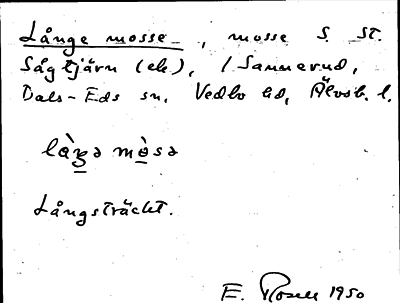 Långe mosse, mosse S. St.
Sågtjärn (ek.), / Sannerud,
Dals-Eds sn, Vedbo hd, Älvsb. l.
Långsträckt.
E. Rosell 1950